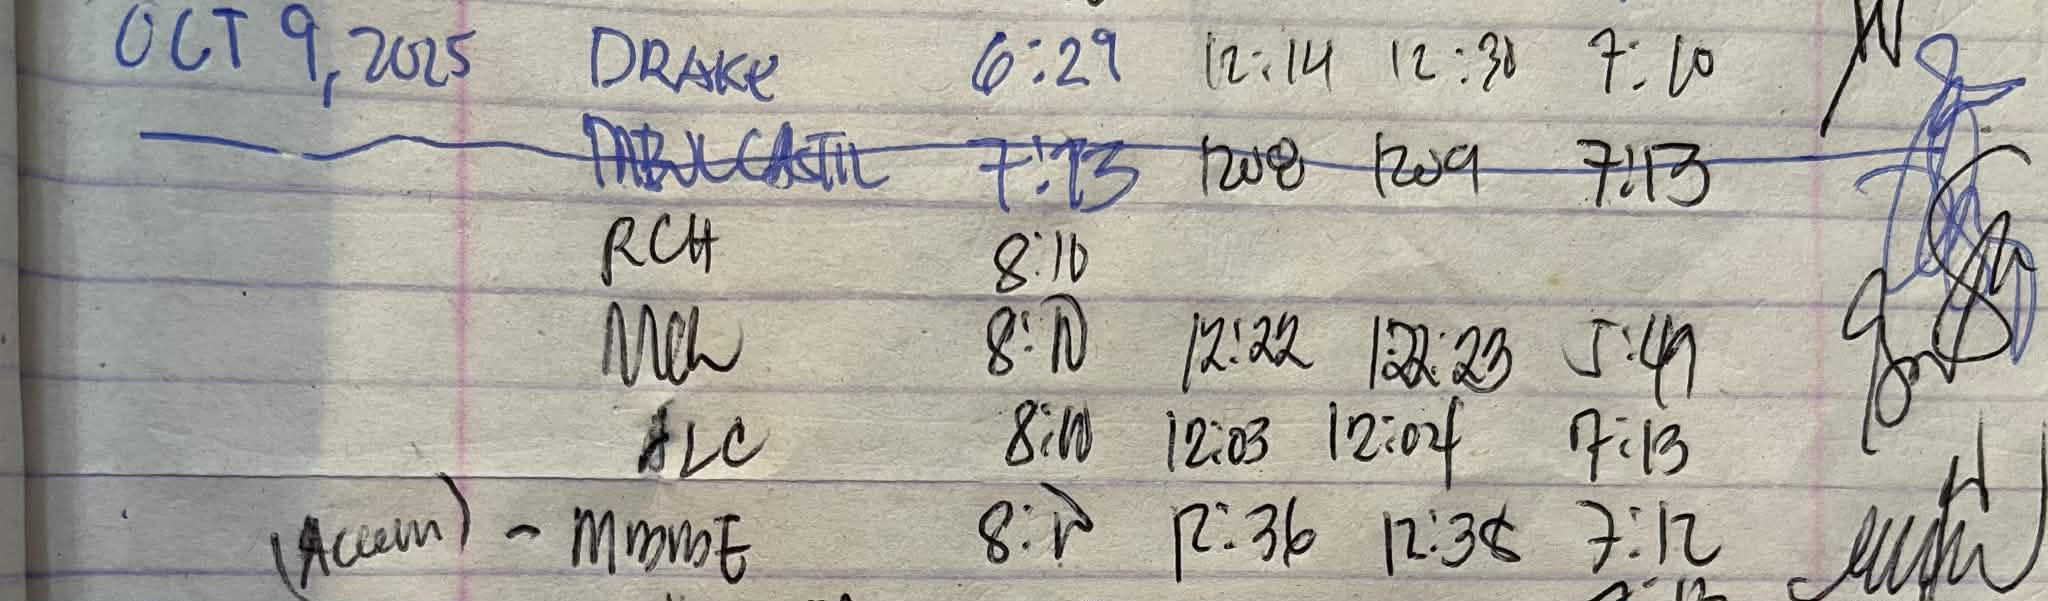 OCT 9, 2025 DRAKE 6:29 12:14 12:30 7:10
7:13 1208 1209 7:13
RCH 8:10
8:10 12:22 12:23 5:49
ALC 8:10 12:03 12:04 7:13
12:36 12:38 7:12